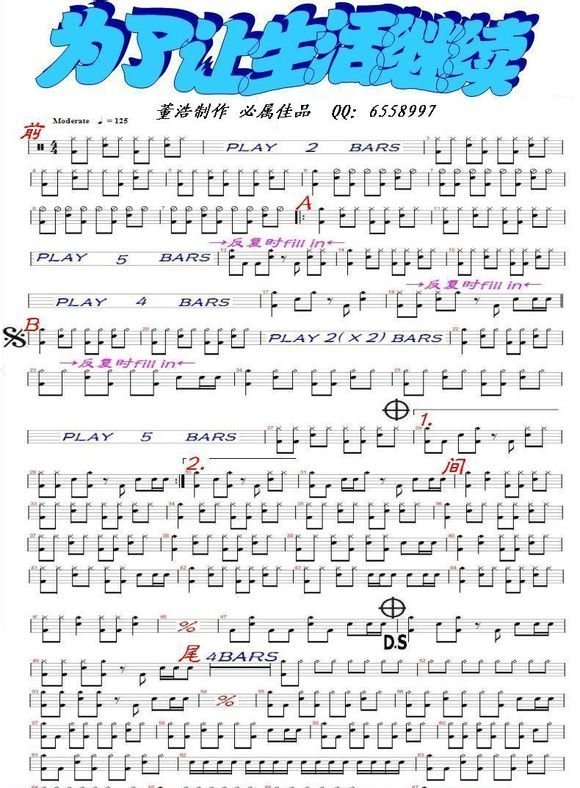 为了让生活继续
董浩制作 必属佳品 QQ: 6558997
Moderate ♩ = 125
前
PLAY 2 BARS
A
→反复时fill in←
PLAY 5 BARS
→反复时fill in←
PLAY 4 BARS
B
PLAY 2(X2) BARS
→反复时fill in←
1.
PLAY 5 BARS
2.
间
%
D.S
尾 4BARS
%